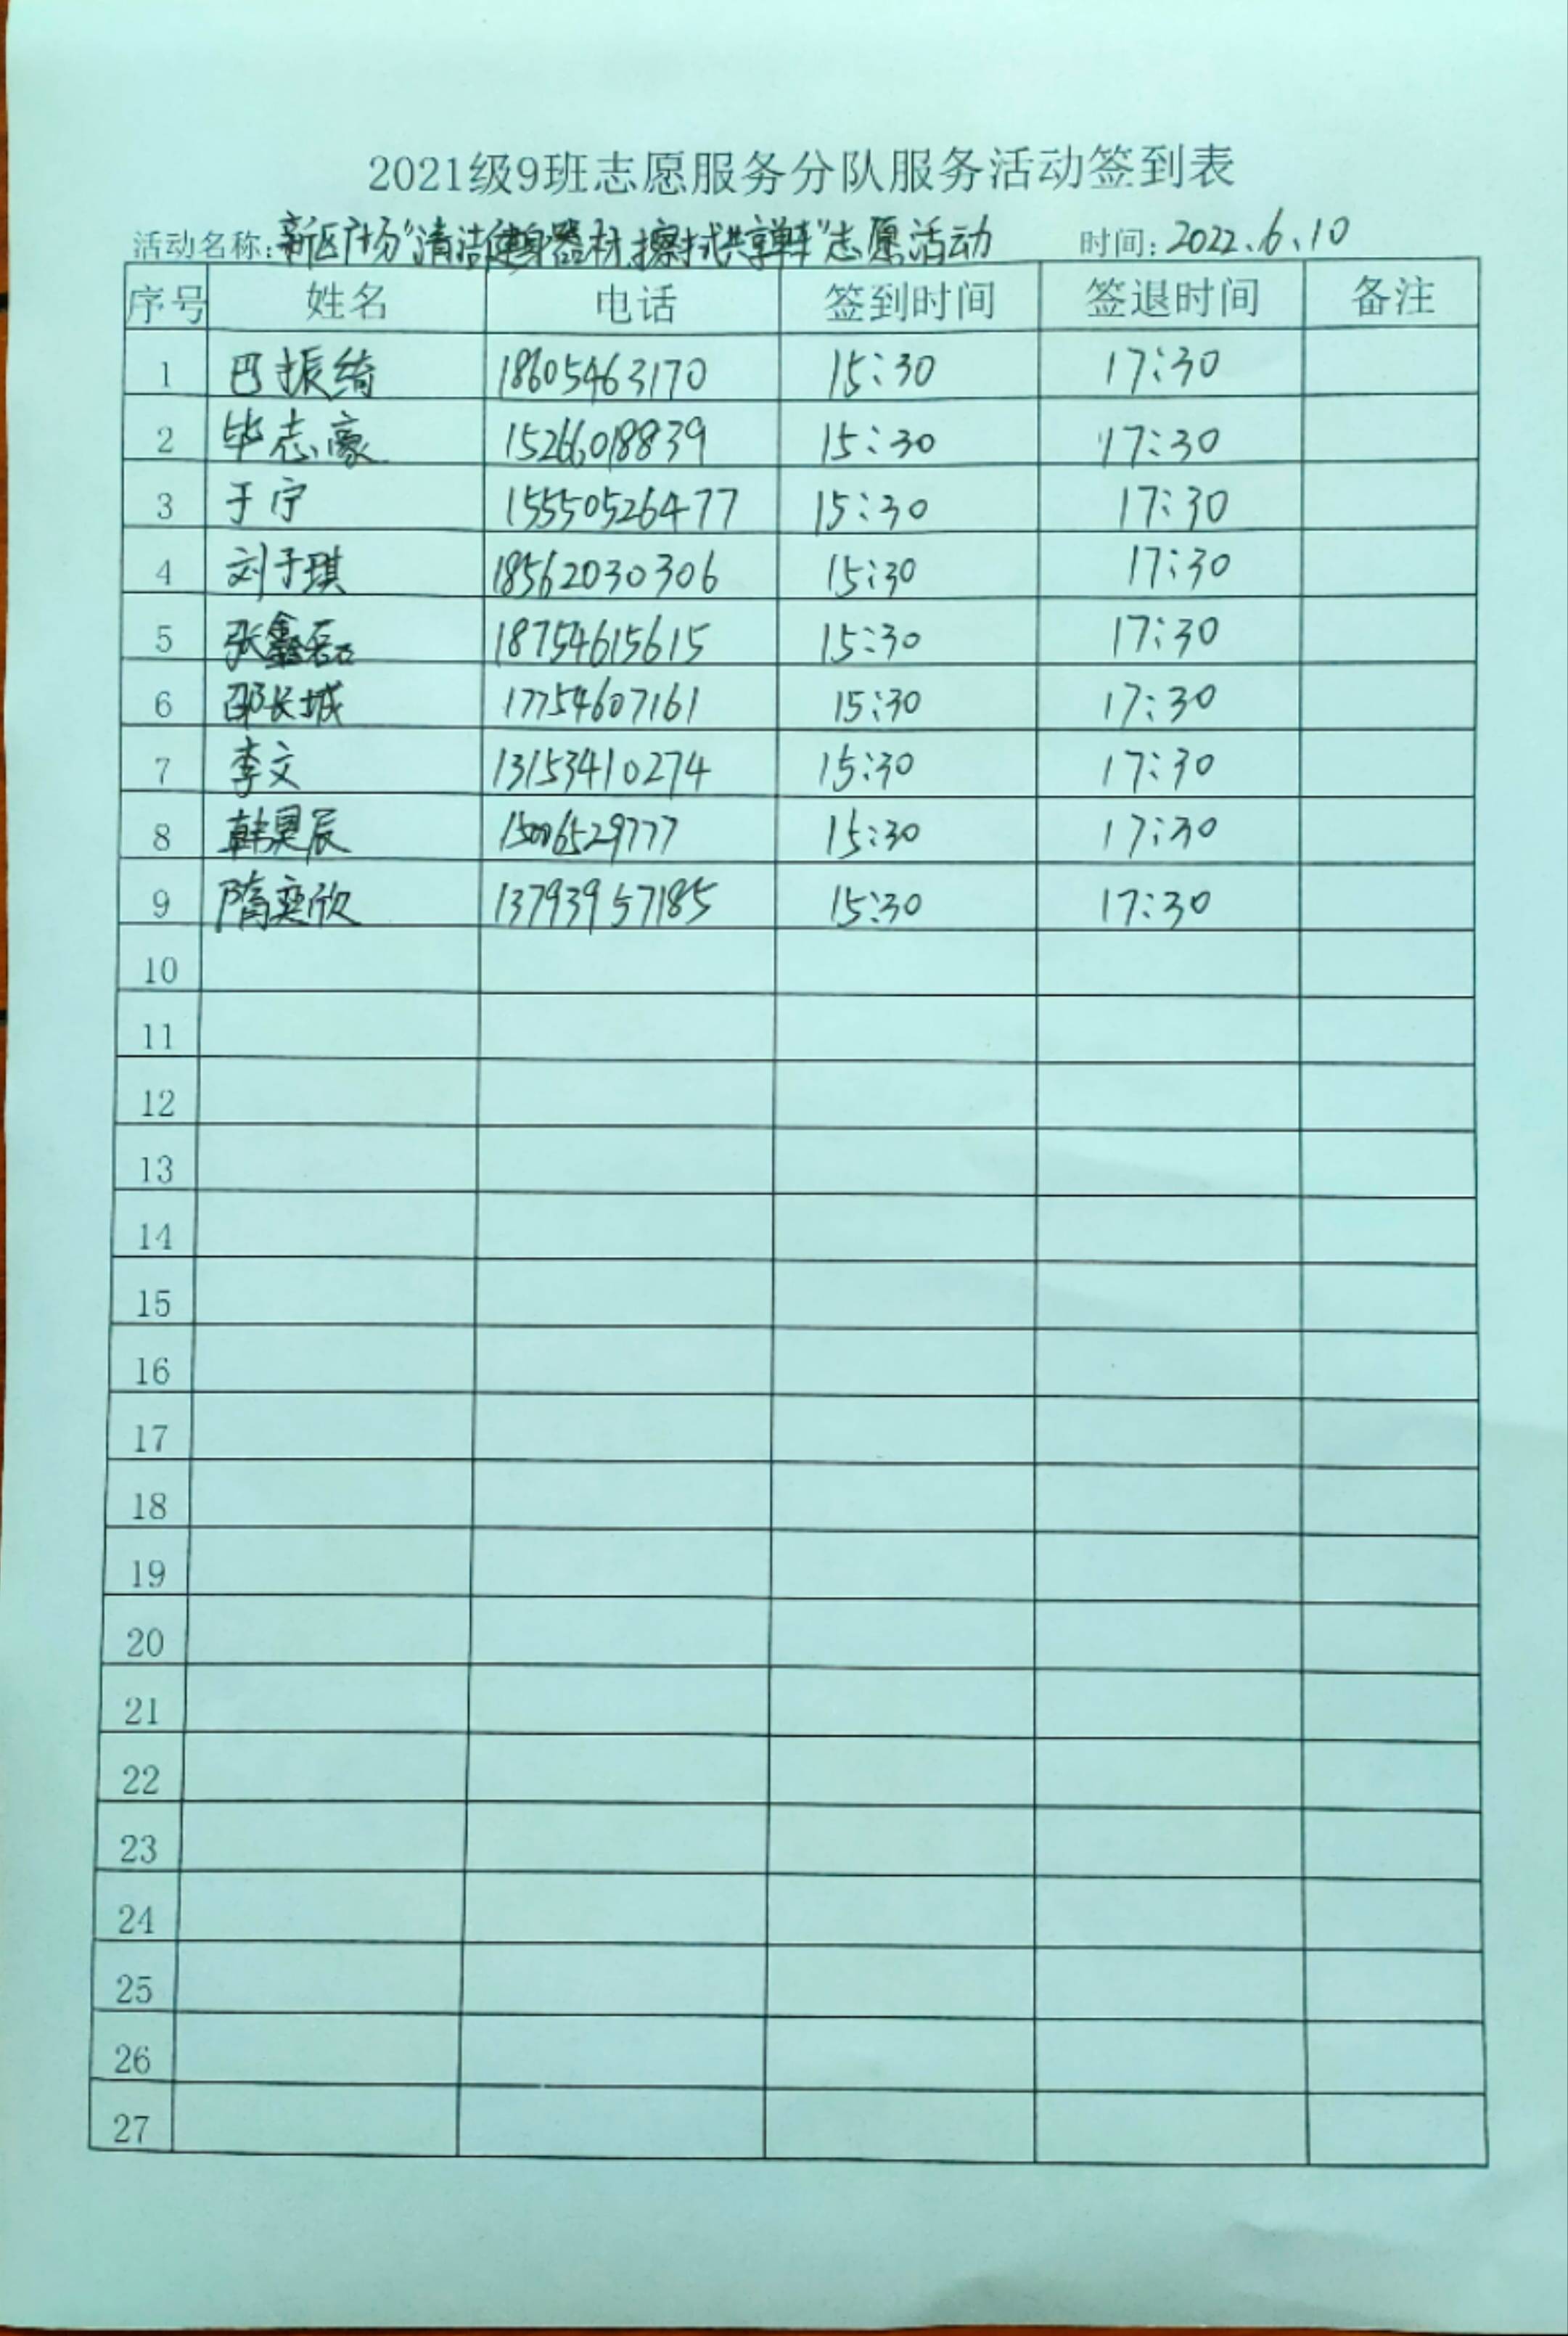 2021级9班志愿服务分队服务活动签到表
活动名称:新区广场"清洁健身器材,擦拭共享单车"志愿活动 时间:2022.6.10
序号 姓名 电话 签到时间 签退时间 备注
1 巴振绮 18605463170 15:30 17:30
2 毕志豪 15266018839 15:30 17:30
3 于宁 15550526477 15:30 17:30
4 刘于琪 18562030306 15:30 17:30
5 张鑫磊 18754615615 15:30 17:30
6 邵长城 17754607161 15:30 17:30
7 李文 13153410274 15:30 17:30
8 韩昊辰 15006529777 15:30 17:30
9 隋奕欣 13793957185 15:30 17:30
10
11
12
13
14
15
16
17
18
19
20
21
22
23
24
25
26
27